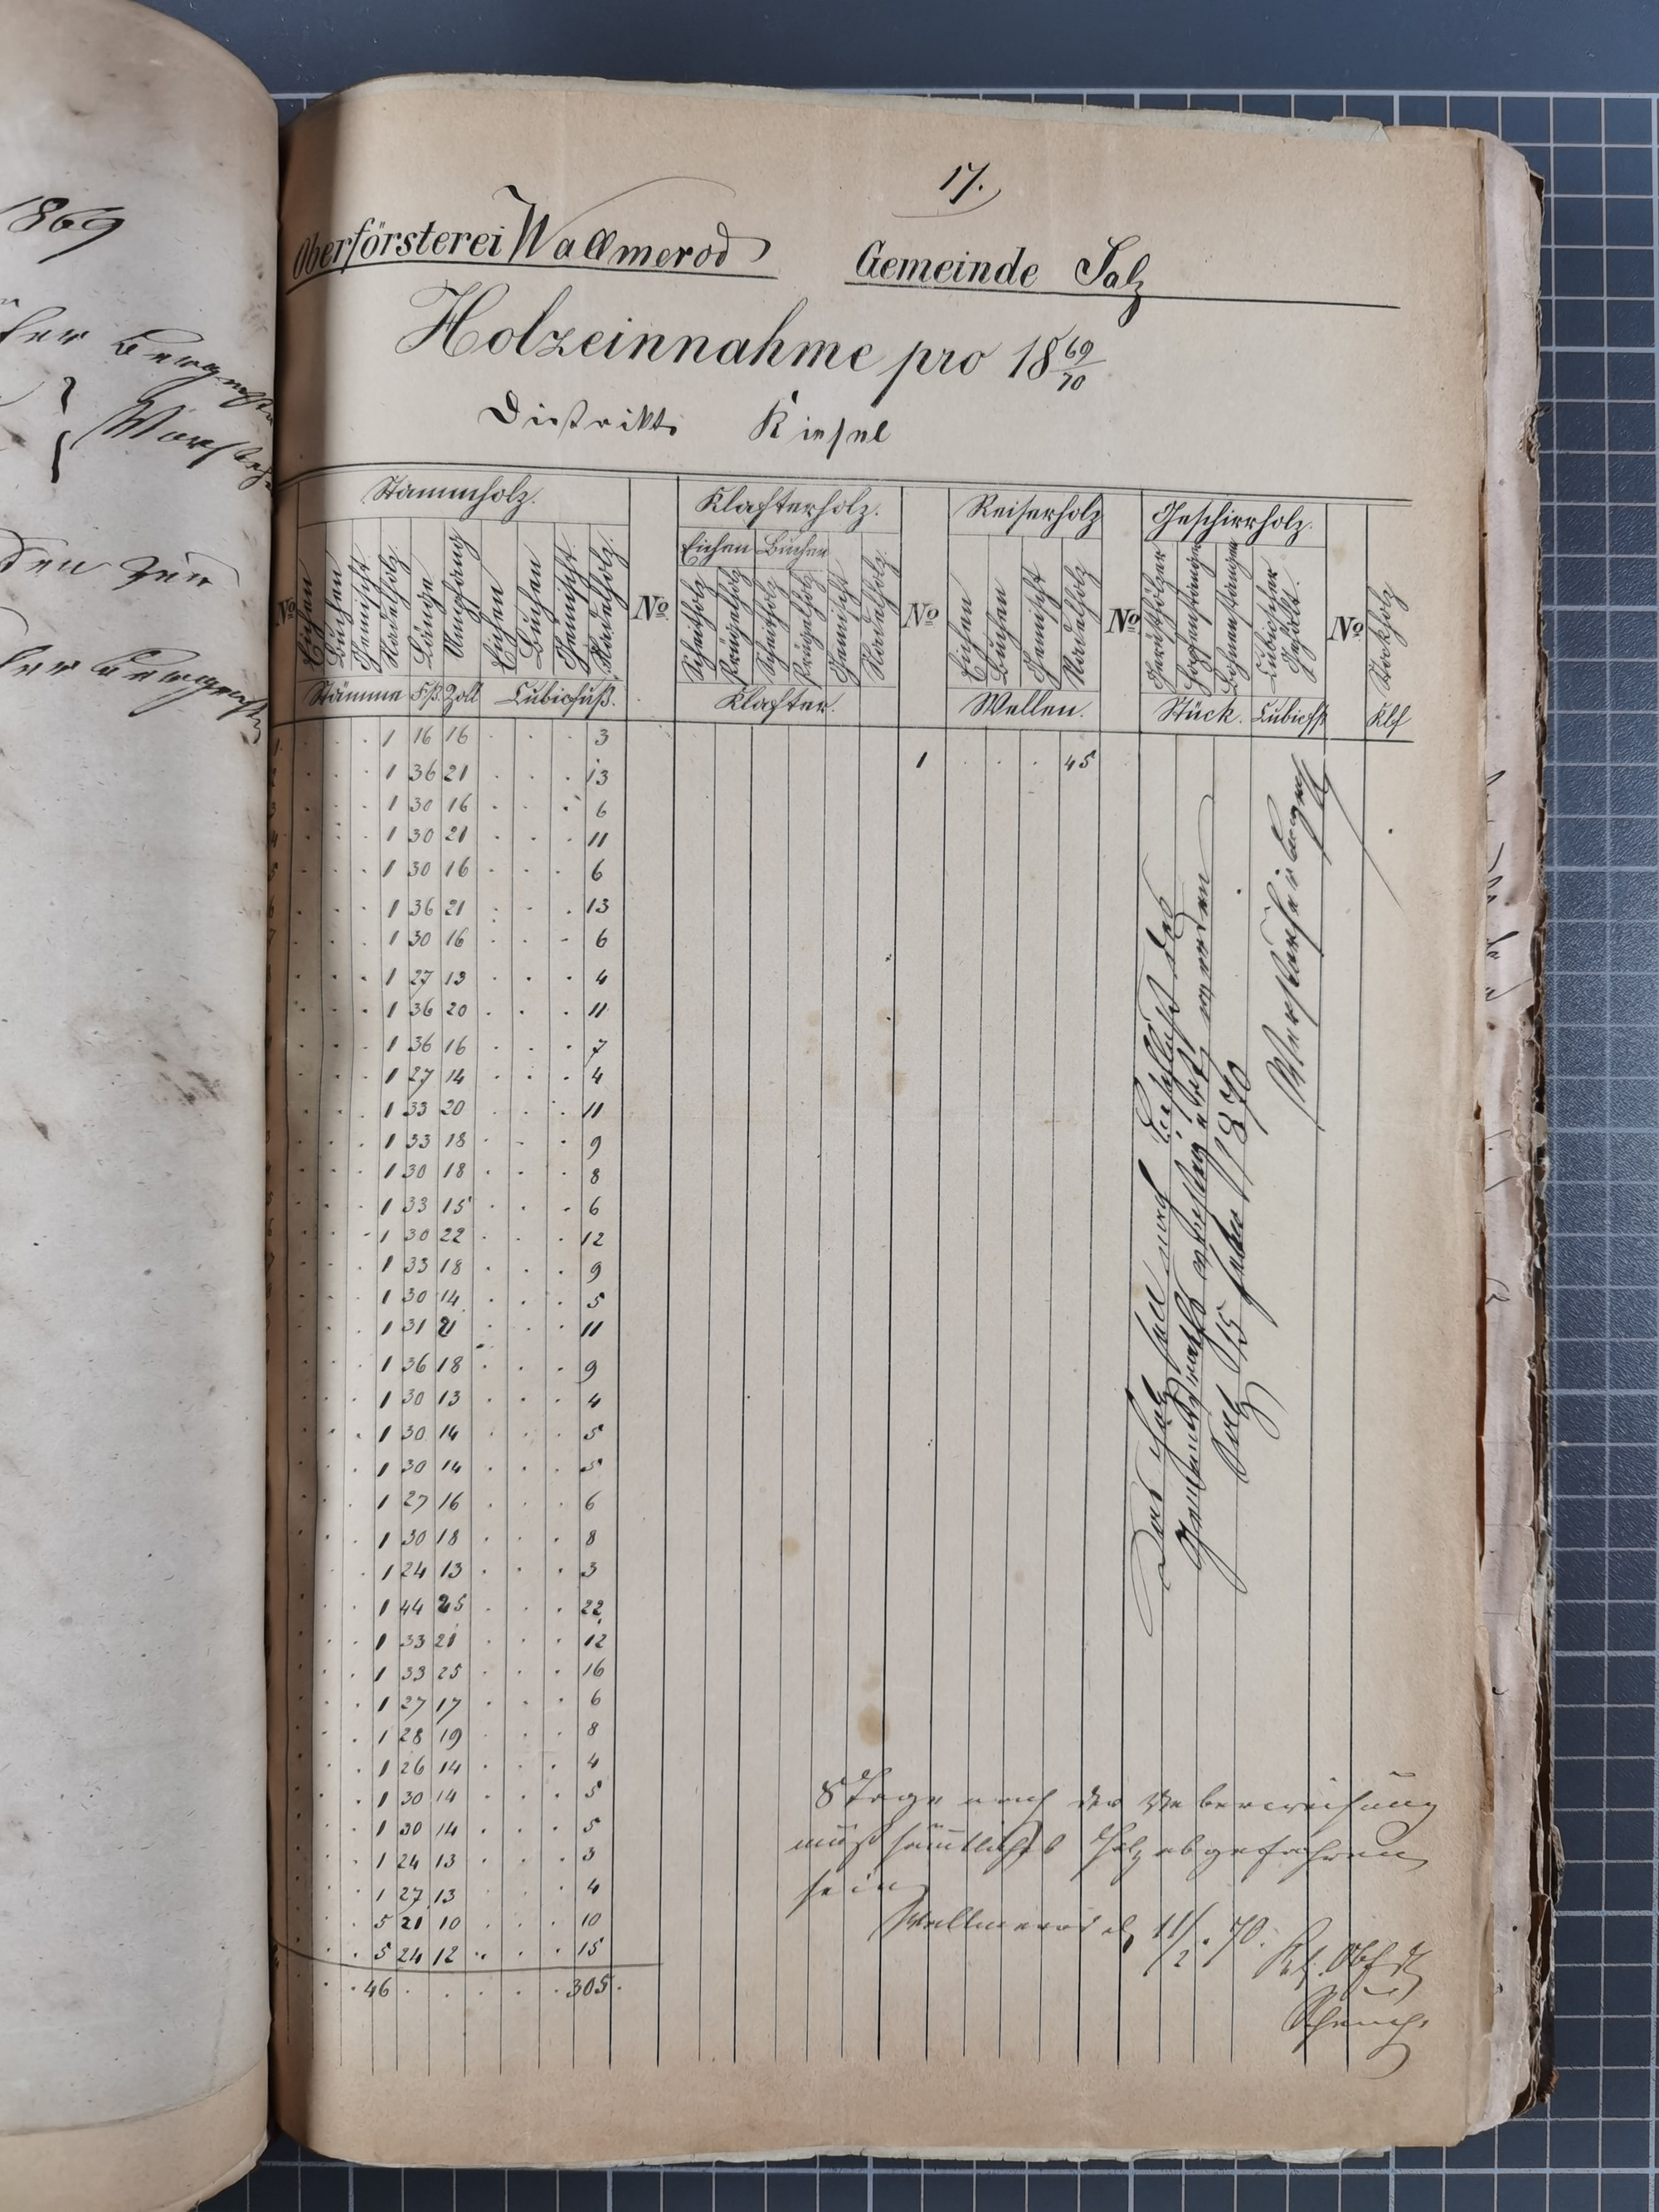 1869
17.
Oberförsterei Wallmerod Gemeinde Salz
Holzeinnahme pro 18 69/70
Distrikt: Kiesel
Stammholz. Klafterholz. Reiserholz Geschirrholz.
Eichen Buchen
No Eichen Buchen Gemischt Nadelholz. Länge Umfang Eichen Buchen Gemischt. Nadelholz. No Scheitholz Prügelholz Scheitholz Prügelholz Gemischt Nadelholz. No Eichen Buchen Gemischt Nadelholz No Gerüsthölzer Hopfenstangen Bohnenstangen Cubischer Gehalt. No Stockholz
Stämme Fß. Zoll Cubicfuß. Klafter. Wellen. Stück. Cubicfß Klf
1 1 16 16 3
2 1 36 21 13 1 45
3 1 30 16 6
4 1 30 21 11
5 1 30 16 6
6 1 36 21 13
7 1 30 16 6
1 27 13 4
1 36 20 11
1 36 16 7
1 27 14 4
1 33 20 11
1 33 18 9
1 30 18 8
1 33 15 6
1 30 22 12
1 33 18 9
1 30 14 5
1 31 21 11
1 36 18 9
1 30 13 4
1 30 14 5
1 30 14 5
1 27 16 6
1 30 18 8
1 24 13 3
1 44 25 22
1 33 21 12
1 33 25 16
1 27 17 6
1 28 19 8
1 26 14 4
1 30 14 5
1 30 14 5
1 24 13 3
1 27 13 4
5 21 10 10
5 24 12 15
46 305
Das Holz soll nach Beschluß des
Gemeinderaths versteigert werden
Salz 15 1870
8 Tage nach der Ueberweisung
muß sämtliches Holz abgefahren
sein
Wallmerod 11/2. 70.